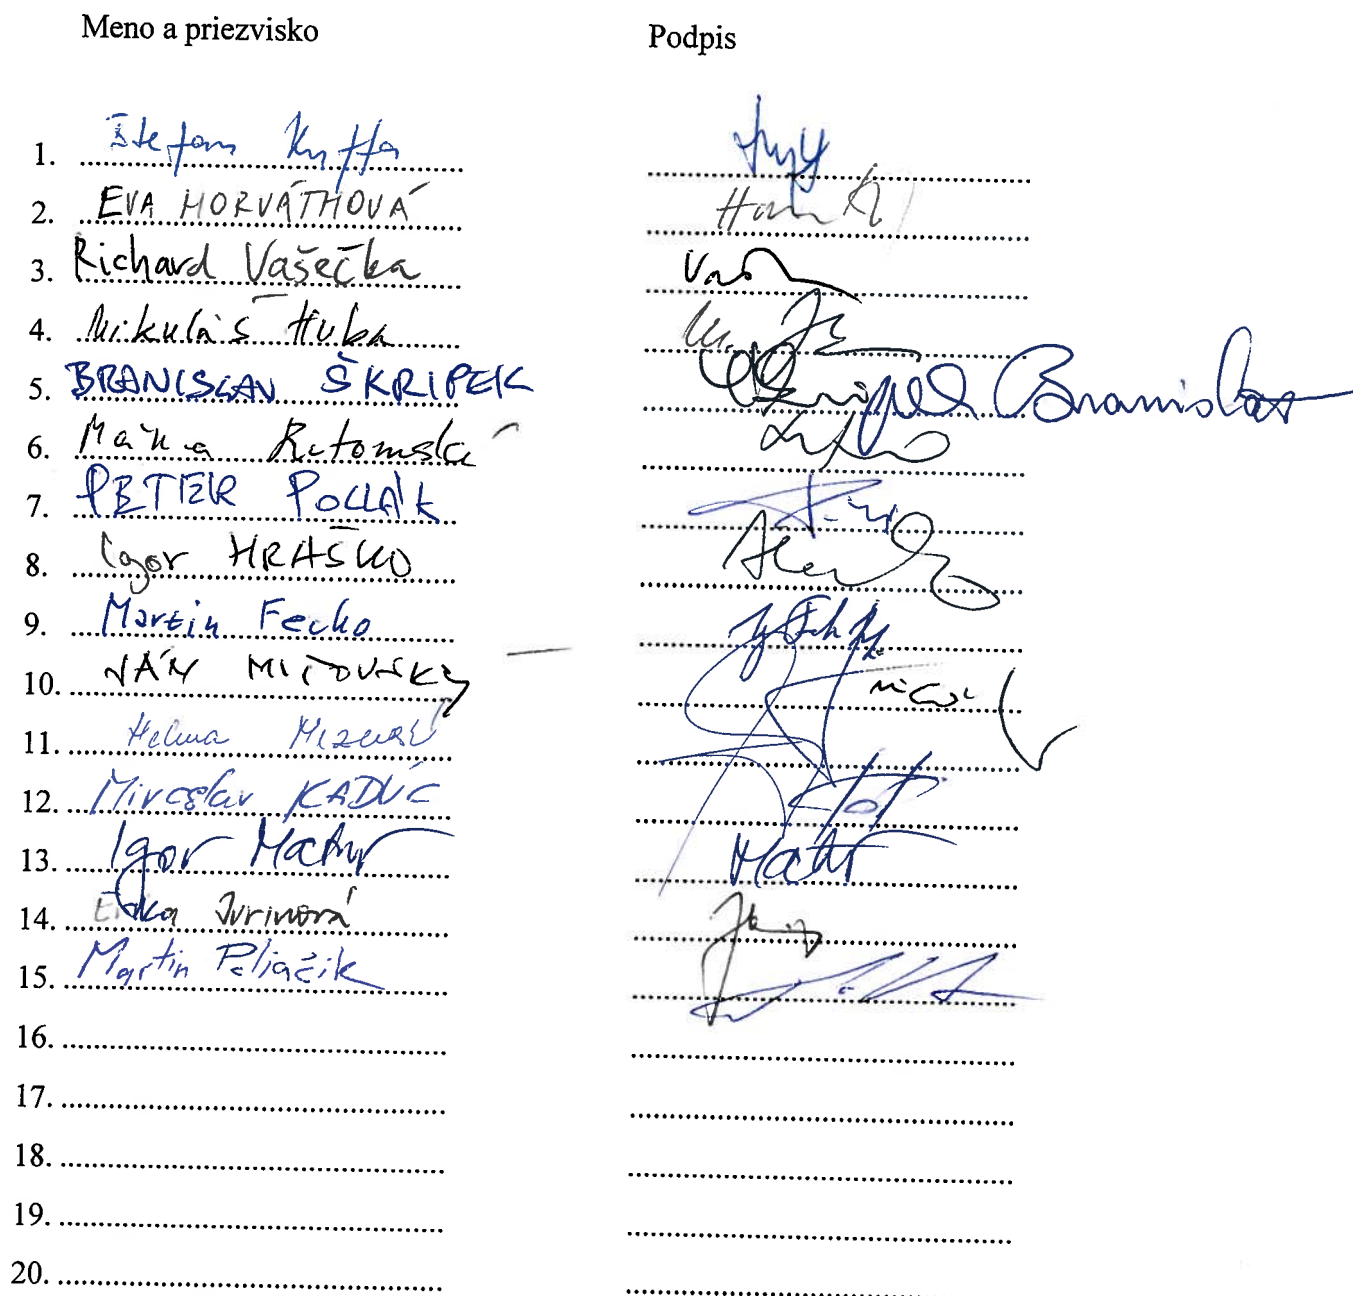 Meno a priezvisko Podpis
1. Štefan Kuffa
2. EVA HORVÁTHOVÁ
3. Richard Vašečka
4. Mikuláš Huba
5. BRANISLAV ŠKRIPEK Škripek Branislav
6. Mária Ritomská
7. PETER POLLÁK
8. Igor HRAŠKO
9. Martin Fecko
10. JÁN MIČOVSKÝ
11. Helena Mezenská
12. Miroslav KADÚC
13. Igor Matovič
14. Erika Jurinová
15. Martin Poliačik
16.
17.
18.
19.
20.